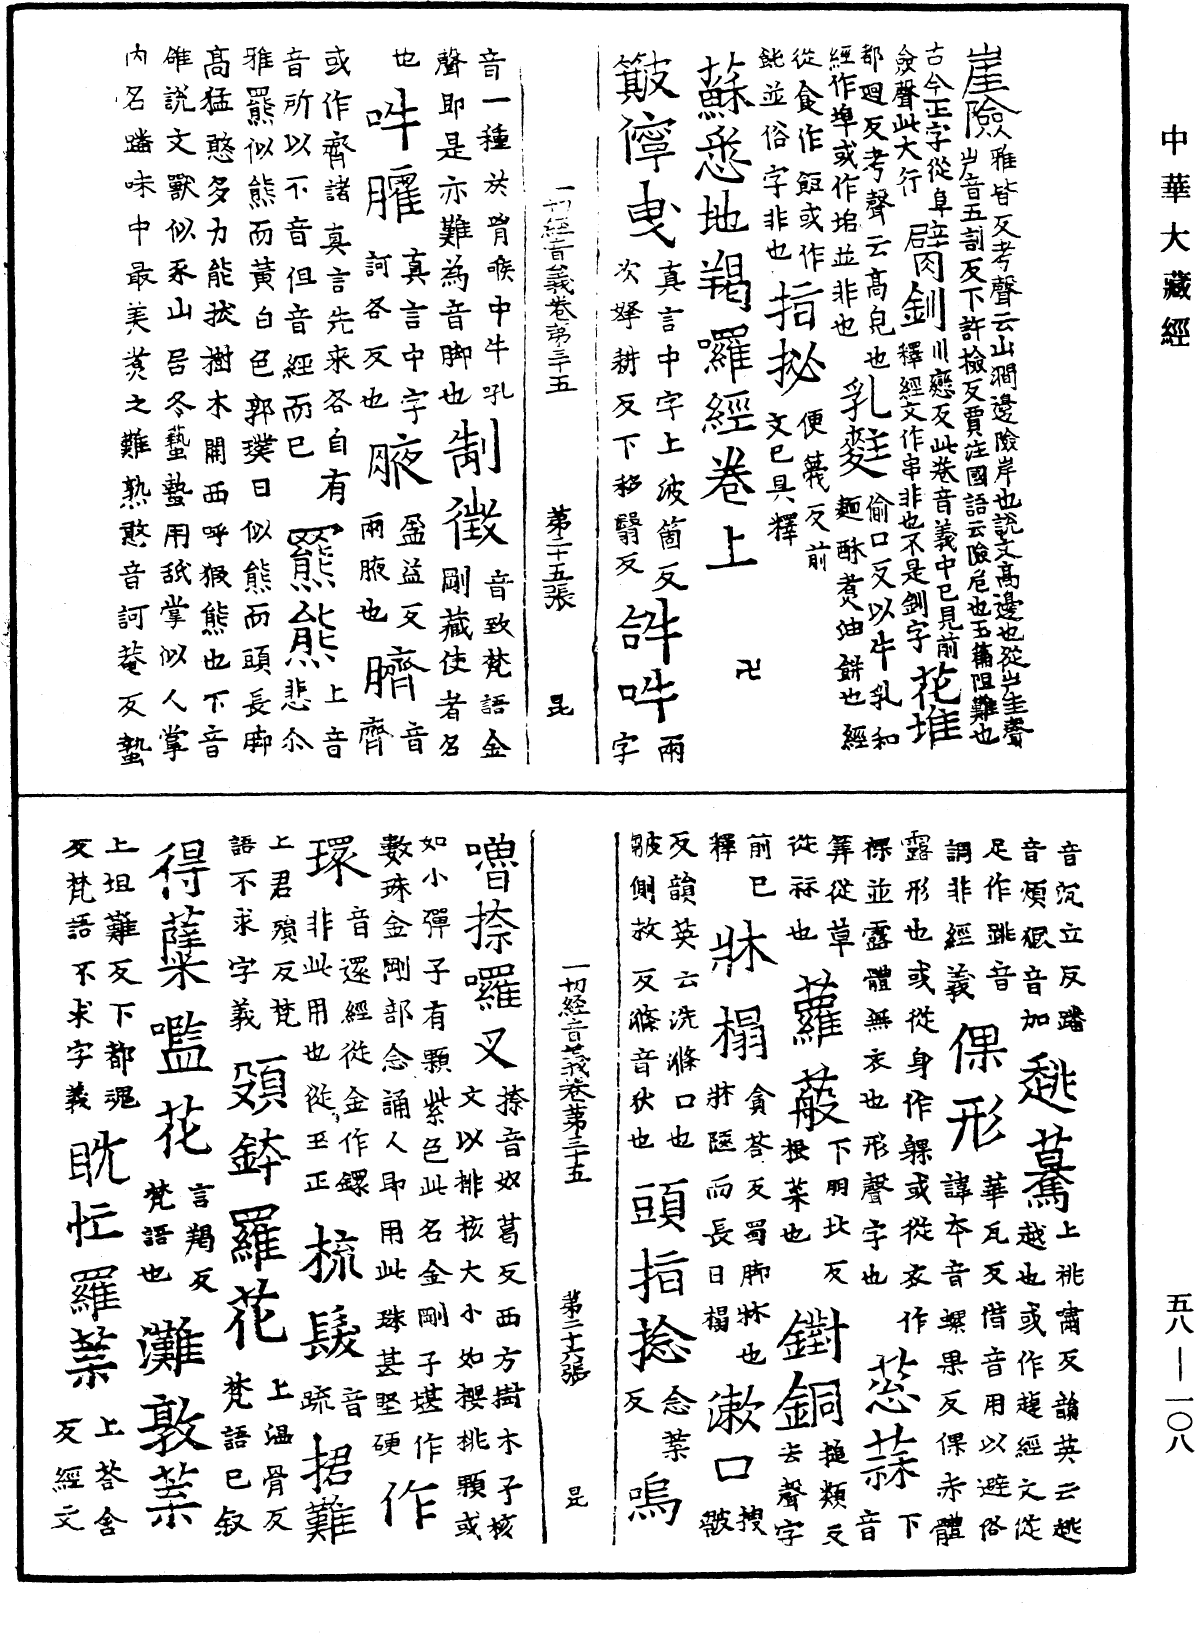 中華大藏經
崖險 雅皆反考聲云山澗邊險岸也說文高邊也從屵圭聲
屵音五割反下許撿反賈注國語云險危也玉篇阻難也
古今正字從阜僉聲此大行 臂釧 川戀反此卷音義中已見前
釋經文作串非也不是釧字 花堆
都迴反考聲云高皃也
經作塠或作㙂並非也 乳𪍿 偷口反以牛乳和
麵酥煮油餅也經
從食作飳或作
䬦並俗字非也 指拯 便蔑反前
文已具釋
蘇悉地羯囉經卷上 卍
簸儜曳 真言中字上波箇反
次搦耕反下移翳反 𤙖吽 兩
字
一切經音義卷第三十五 第二十五張 昆
音一種於胷喉中牛吼
聲即是亦難為音脚也 制徵 音致梵語金
剛藏使者名
也 吽臛 真言中字
訶各反也 腋 盈益反
兩腋也 臍 音
齊
或作齊諸真言先來各自有
音所以不音但音經而已 羆熊 上音
悲尒
雅羆似熊而黃白色郭璞曰似熊而頭長脚
高猛憨多力能拔樹木關西呼猳熊也下音
雄說文獸似豕山居冬蟄蟄用舐掌似人掌
內名蹯味中最美煑之難熟憨音訶菴反蟄
音沉立反蹯
音煩猳音加 趒驀 上祧嘯反韻英云趒
越也或作趠經文從
足作跳音
調非經義 倮形 華瓦反借音用以避俗
諱本音螺果反倮赤體
露形也或從身作躶或從衣作
裸並露體無衣也形聲字也 䓗蒜 下
音
筭從草
從祘也 蘿菔 下朋北反
根菜也 鐗銅 搥類反
去聲字
前已
釋 牀榻 貪荅反蜀脚牀也
牀陿而長曰榻 漱口 搜
皺
反韻英云洗滌口也
皺側救反滌音狄也 頭指捻 念葉
反 嗚
一切經音義卷第三十五 第二十六張 昆
嚕捺囉叉 捺音奴葛反西方樹木子核
文以桃核大小如櫻桃顆或
如小彈子有顆紫色此名金剛子堪作
數珠金剛部念誦人即用此珠甚堅硬 作
環 音還經從金作鐶
非此用也從玉正 梳髮 音
疏 捃難
上君殞反梵
語不求字義 頞鉢羅花 上溫骨反
梵語已叙
得薩㘕花 言羯反
梵語也 灘敦葉
上坦難反下都魂
反梵語不求字義 眈忙羅葉 上荅含
反經文
五八—一〇八